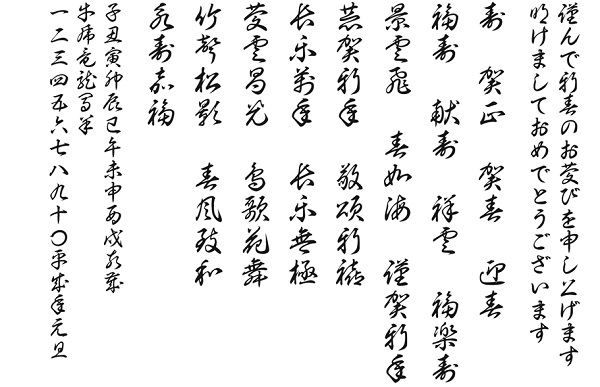 謹んで新春のお慶びを申し上げます
明けましておめでとうございます
寿　賀正　賀春　迎春
福寿　献寿　祥雲　福楽寿
景雲飛　春如海　謹賀新年
恭賀新年　敬頌新禧
長楽萬年　長楽無極
慶雲昌光　鳥歌花舞
竹聲松影　春風致和
永寿嘉福
子丑寅卯辰巳午未申酉戌亥歳
牛虎兎龍馬羊
一二三四五六七八九十〇平成年元旦